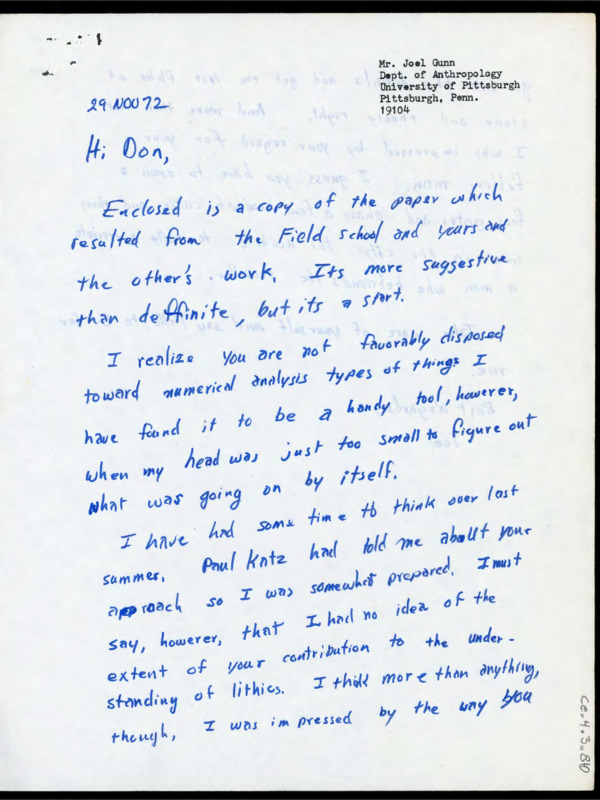 Mr. Joel Gunn
Dept. of Anthropology
University of Pittsburgh
Pittsburgh, Penn.
19104
29 NOV 72
Hi Don,
Enclosed is a copy of the paper which
resulted from the Field school and yours and
the other's work. Its more suggestive
than deffinite, but its a start.
I realize you are not favorably disposed
toward numerical analysis types of things I
have found it to be a handy tool, however,
when my head was just too small to figure out
what was going on by itself.
I have had some time to think over last
summer. Paul Katz had told me about your
approach so I was somewhat prepared. I must
say, however, that I had no idea of the
extent of your contribution to the under-
standing of lithics. I think more than anything,
though, I was impressed by the way you
Ce.4.3.86